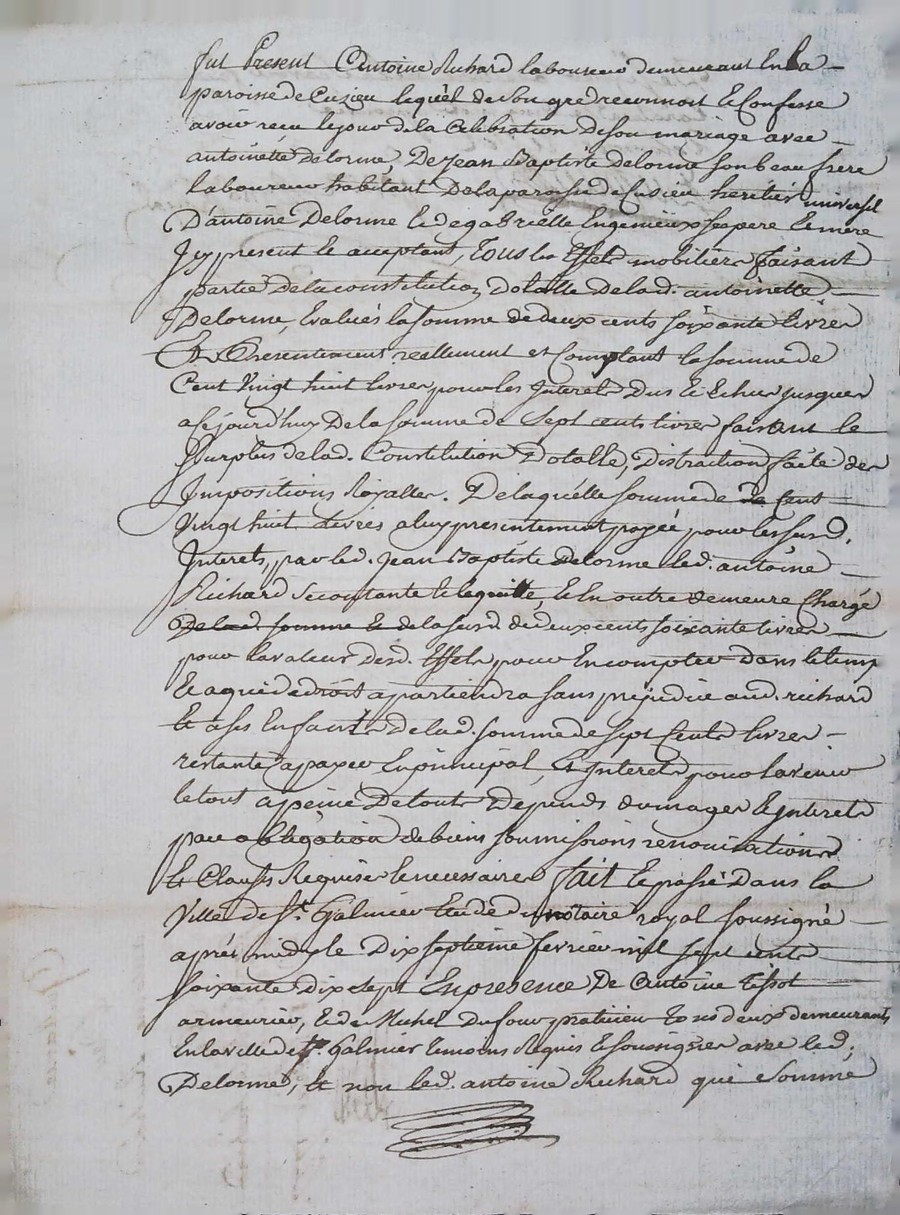 fut Present Antoine Richard laboureur demeurant En la
paroisse de Cuzieu lequel de son gré reconnoit et Confesse
avoir recu le jour de la Celebration de son mariage avec
antoinette Delorme, De jean Baptiste delorme son beau frere
laboureur habitant De la paroisse de Cusieu heritier universel
D'antoine Delorme et de gabrielle Engenieux ses pere et mere
Icy present et acceptant, Tous les Effets mobiliers faisant
partie De la constitution Dotalle de lad. antoinette
Delorme, Evalués la somme de deux cents soixante livres
Et Presentement reellement et Comptant la somme de
Cent Vingt huit livres, pour les Interets Dus et Echus jusques
a Ce jourd'huy De la somme de Sept cents livres faisant le
Surplus de lad. Constitution Dotalle, Distraction faite des
Impositions Royalles. De laquelle somme de Cent
Vingt huit Livres a luy presentement payée pour les susd.
Interets, par led. jean Baptiste delorme led. antoine
Richard se contante et le quitte, et En outre demeure Chargé
De lad. somme et de la susd. de deux cents soixante livres
pour la valeur desd. Effets pour En compter dans le temps
Et a qui de droit appartiendra sans prejudice aud. richard
Et a ses Enfants De lad. somme de sept Cents livres
restante a payer En principal, Et Interets pour l'avenir
le tout a peine De touts Depends dommages Et Interets
par obligation de biens soumissions renonciations
Et Clauses Requises et necessaires fait et passé Dans la
Ville de St. Galmier Etude du notaire royal soussigné
aprés midy le Dix septieme fevrier mil sept cents
soixante dix sept En presence De Antoine tissot
armeurier, Et de Michel Dufour praticien Tous deux demeurants
En la ville de St. Galmier temoins Requis Et soussignés avec led.
Delorme, Et non led. antoine Richard qui Somme